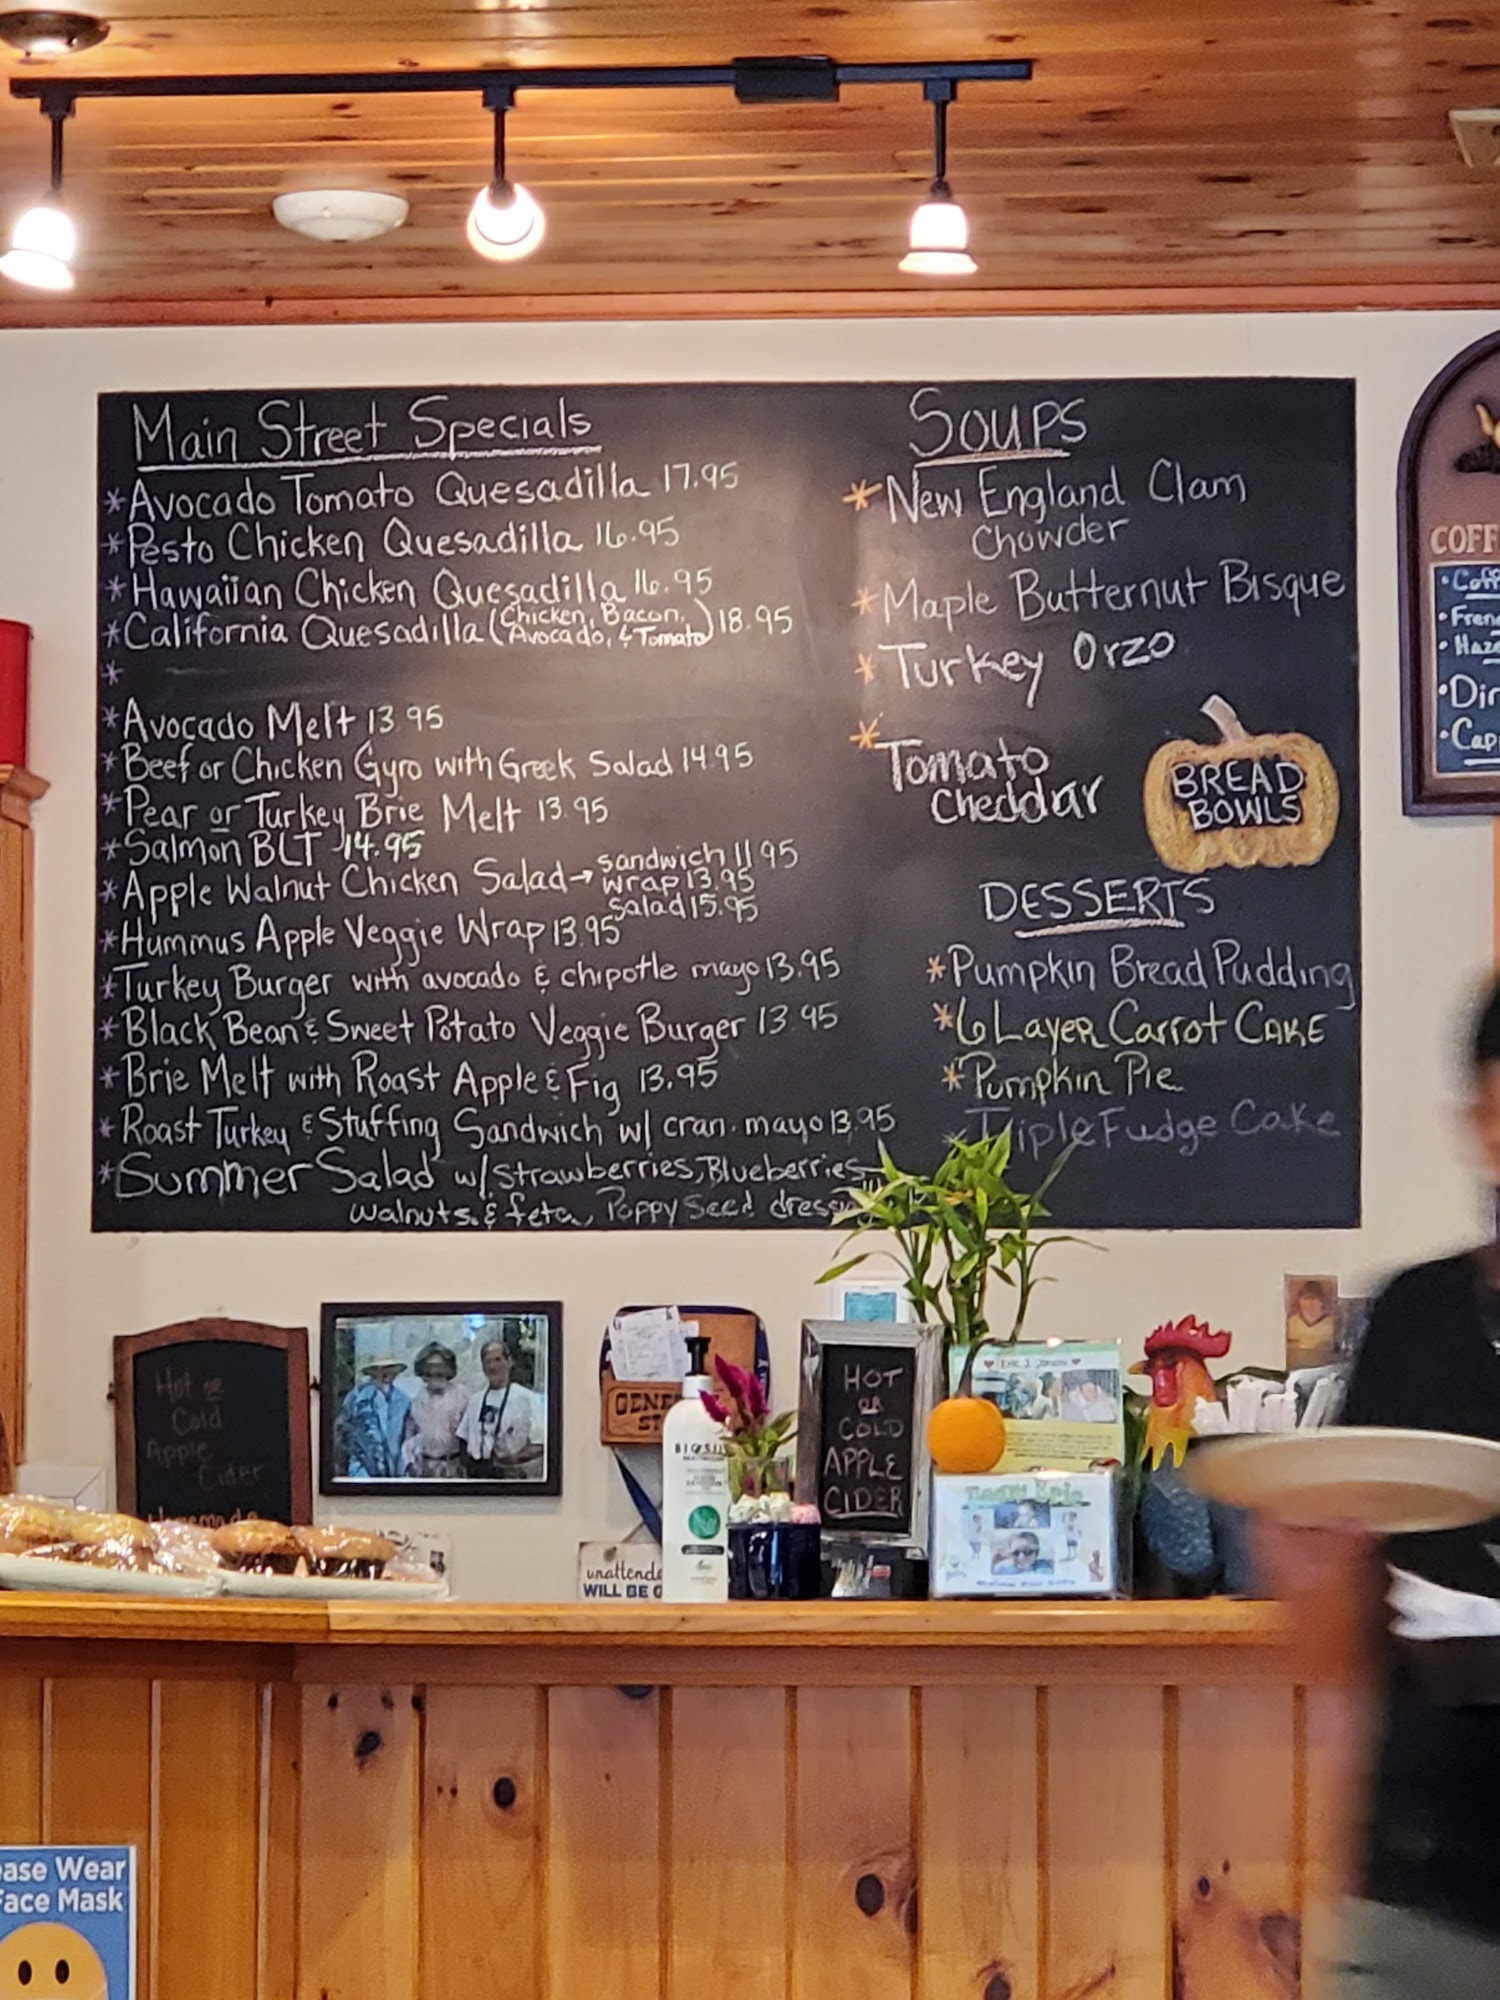 Main Street Specials
*Avocado Tomato Quesadilla 17.95
*Pesto Chicken Quesadilla 16.95
*Hawaiian Chicken Quesadilla 16.95
*California Quesadilla (Chicken, Bacon, Avocado, & Tomato) 18.95
*
*Avocado Melt 13.95
*Beef or Chicken Gyro with Greek Salad 14.95
*Pear or Turkey Brie Melt 13.95
*Salmon BLT 14.95
*Apple Walnut Chicken Salad → sandwich 11.95
wrap 13.95
salad 15.95
*Hummus Apple Veggie Wrap 13.95
*Turkey Burger with avocado & chipotle mayo 13.95
*Black Bean & Sweet Potato Veggie Burger 13.95
*Brie Melt with Roast Apple & Fig 13.95
*Roast Turkey & Stuffing Sandwich w/ cran. mayo 13.95
*Summer Salad w/ strawberries, Blueberries
walnuts & feta, Poppy Seed dressing
Soups
*New England Clam
Chowder
*Maple Butternut Bisque
*Turkey Orzo
*Tomato
Cheddar
BREAD
BOWLS
DESSERTS
*Pumpkin Bread Pudding
*6 Layer Carrot Cake
*Pumpkin Pie
*Triple Fudge Cake
COFF
•Coff
•Fren
•Haze
•Dir
•Cap
Hot or
Cold
Apple
Cider
Homemade
GENE
ST
HOT
OR
COLD
APPLE
CIDER
Eric J. Jones
Team Eric
unattende
WILL BE
ease Wear
Face Mask